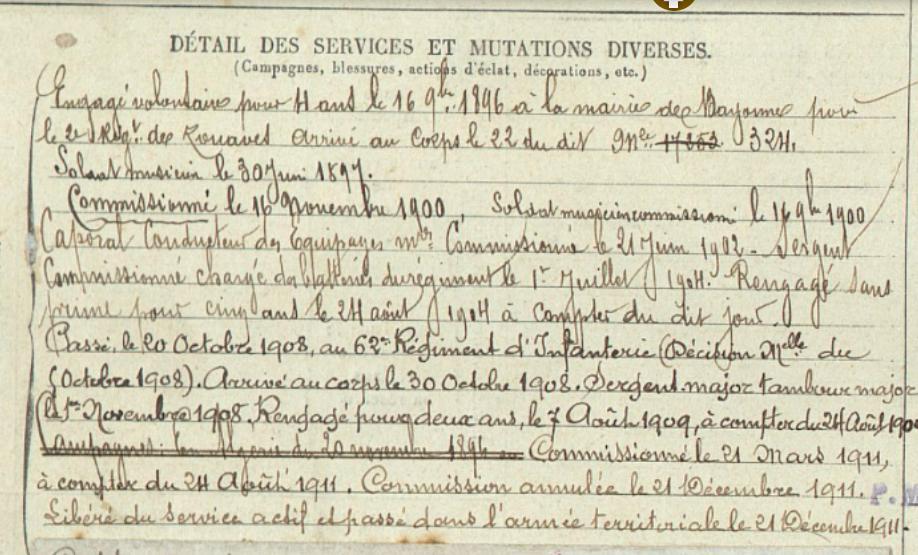 DÉTAIL DES SERVICES ET MUTATIONS DIVERSES.
(Campagnes, blessures, actions d'éclat, décorations, etc.)
Engagé volontaire pour 4 ans le 16 9bre 1896 à la mairie de Bayonne pour
le 2e Régt de Zouaves arrivé au Corps le 22 du dit Mle 17353 324.
Soldat musicien le 30 Juin 1897.
Commissionné le 16 Novembre 1900, Soldat musicien commissionné le 16 9bre 1900
Caporal Conducteur des Equipages mres Commissionné le 21 Juin 1902 - Sergent
Commissionné chargé des du régiment le 1er Juillet 1904. Rengagé sans
prime pour cinq ans le 24 août 1904 à compter du dit jour.
Passé, le 20 Octobre 1908, au 62e Régiment d'Infanterie (Décision Melle du
Octobre 1908). Arrivé au corps le 30 Octobre 1908. Sergent major tambour major
le 1er Novembre 1908. Rengagé pour deux ans, le 7 Août 1909, à compter du 24 Août 190
Campagnes: En Algérie du 20 novembre 1896 au Commissionné le 21 Mars 1911,
à compter du 24 Août 1911. Commission annulée le 21 Décembre 1911. P.M
Libéré du service actif et passé dans l'armée territoriale le 21 Décembre 1911.